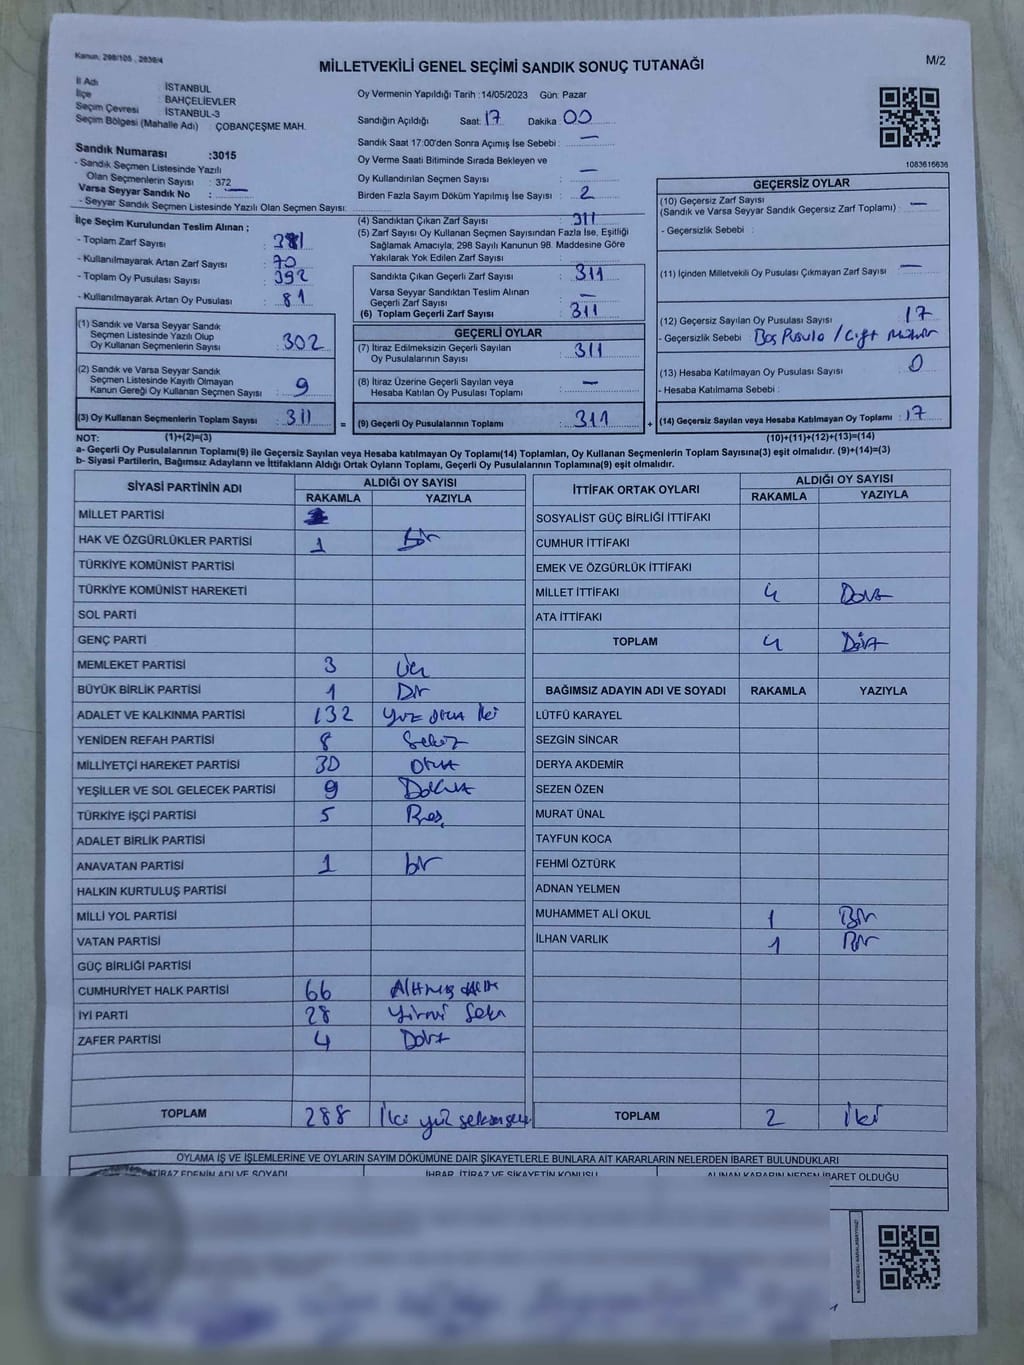 Kanun, 298/105 , 2839/4
MİLLETVEKİLİ GENEL SEÇİMİ SANDIK SONUÇ TUTANAĞI
M/2
İl Adı : İSTANBUL
İlçe : BAHÇELİEVLER
Seçim Çevresi : İSTANBUL-3
Seçim Bölgesi (Mahalle Adı) : ÇOBANÇEŞME MAH.
Sandık Numarası :3015
- Sandık Seçmen Listesinde Yazılı
Olan Seçmenlerin Sayısı : 372
Varsa Seyyar Sandık No : —
- Seyyar Sandık Seçmen Listesinde Yazılı Olan Seçmen Sayısı:
İlçe Seçim Kurulundan Teslim Alınan ;
- Toplam Zarf Sayısı : 381
- Kullanılmayarak Artan Zarf Sayısı : 70
- Toplam Oy Pusulası Sayısı : 392
- Kullanılmayarak Artan Oy Pusulası : 81
(1) Sandık ve Varsa Seyyar Sandık
Seçmen Listesinde Yazılı Olup
Oy Kullanan Seçmenlerin Sayısı : 302
(2) Sandık ve Varsa Seyyar Sandık
Seçmen Listesinde Kayıtlı Olmayan
Kanun Gereği Oy Kullanan Seçmen Sayısı : 9
(3) Oy Kullanan Seçmenlerin Toplam Sayısı : 311
Oy Vermenin Yapıldığı Tarih :14/05/2023 Gün: Pazar
Sandığın Açıldığı Saat: 17 Dakika 00
Sandık Saat 17:00'den Sonra Açımış İse Sebebi : —
Oy Verme Saati Bitiminde Sırada Bekleyen ve
Oy Kullandırılan Seçmen Sayısı : —
Birden Fazla Sayım Döküm Yapılmış İse Sayısı : 2
(4) Sandıktan Çıkan Zarf Sayısı : 311
(5) Zarf Sayısı Oy Kullanan Seçmen Sayısından Fazla İse, Eşitliği
Sağlamak Amacıyla, 298 Sayılı Kanunun 98. Maddesine Göre
Yakılarak Yok Edilen Zarf Sayısı :
Sandıkta Çıkan Geçerli Zarf Sayısı : 311
Varsa Seyyar Sandıktan Teslim Alınan
Geçerli Zarf Sayısı : —
(6) Toplam Geçerli Zarf Sayısı : 311
GEÇERLİ OYLAR
(7) İtiraz Edilmeksizin Geçerli Sayılan
Oy Pusulalarının Sayısı : 311
(8) İtiraz Üzerine Geçerli Sayılan veya
Hesaba Katılan Oy Pusulaları Toplamı : —
= (9) Geçerli Oy Pusulalarının Toplamı : 311 +
1083616636
GEÇERSİZ OYLAR
(10) Geçersiz Zarf Sayısı
(Sandık ve Varsa Seyyar Sandık Geçersiz Zarf Toplamı) : —
- Geçersizlik Sebebi :
(11) İçinden Milletvekili Oy Pusulası Çıkmayan Zarf Sayısı : —
(12) Geçersiz Sayılan Oy Pusulası Sayısı : 17
- Geçersizlik Sebebi : Boş Pusula / Çift Mühür
(13) Hesaba Katılmayan Oy Pusulası Sayısı : 0
- Hesaba Katılmama Sebebi :
(14) Geçersiz Sayılan veya Hesaba Katılmayan Oy Toplamı : 17
NOT: (1)+(2)=(3) (10)+(11)+(12)+(13)=(14)
a- Geçerli Oy Pusulalarının Toplamı(9) ile Geçersiz Sayılan veya Hesaba katılmayan Oy Toplamı(14) Toplamları, Oy Kullanan Seçmenlerin Toplam Sayısına(3) eşit olmalıdır. (9)+(14)=(3)
b- Siyasi Partilerin, Bağımsız Adayların ve İttifakların Aldığı Ortak Oyların Toplamı, Geçerli Oy Pusulalarının Toplamına(9) eşit olmalıdır.
SİYASİ PARTİNİN ADI
ALDIĞI OY SAYISI
RAKAMLA YAZIYLA
MİLLET PARTİSİ
HAK VE ÖZGÜRLÜKLER PARTİSİ 1 Bir
TÜRKİYE KOMÜNİST PARTİSİ
TÜRKİYE KOMÜNİST HAREKETİ
SOL PARTİ
GENÇ PARTİ
MEMLEKET PARTİSİ 3 Üç
BÜYÜK BİRLİK PARTİSİ 1 Bir
ADALET VE KALKINMA PARTİSİ 132 Yüz otuz iki
YENİDEN REFAH PARTİSİ 8 Sekiz
MİLLİYETÇİ HAREKET PARTİSİ 30 Otuz
YEŞİLLER VE SOL GELECEK PARTİSİ 9 Dokuz
TÜRKİYE İŞÇİ PARTİSİ 5 Beş
ADALET BİRLİK PARTİSİ
ANAVATAN PARTİSİ 1 bir
HALKIN KURTULUŞ PARTİSİ
MİLLİ YOL PARTİSİ
VATAN PARTİSİ
GÜÇ BİRLİĞİ PARTİSİ
CUMHURİYET HALK PARTİSİ 66 Altmış altı
İYİ PARTİ 28 Yirmi Sekiz
ZAFER PARTİSİ 4 Dört
TOPLAM 288 İki yüz seksen sekiz
İTTİFAK ORTAK OYLARI
ALDIĞI OY SAYISI
RAKAMLA YAZIYLA
SOSYALİST GÜÇ BİRLİĞİ İTTİFAKI
CUMHUR İTTİFAKI
EMEK VE ÖZGÜRLÜK İTTİFAKI
MİLLET İTTİFAKI 4 Dört
ATA İTTİFAKI
TOPLAM 4 Dört
BAĞIMSIZ ADAYIN ADI VE SOYADI RAKAMLA YAZIYLA
LÜTFÜ KARAYEL
SEZGİN SİNCAR
DERYA AKDEMİR
SEZEN ÖZEN
MURAT ÜNAL
TAYFUN KOCA
FEHMİ ÖZTÜRK
ADNAN YELMEN
MUHAMMET ALİ OKUL 1 Bir
İLHAN VARLIK 1 Bir
TOPLAM 2 İki
OYLAMA İŞ VE İŞLEMLERİNE VE OYLARIN SAYIM DÖKÜMÜNE DAİR ŞİKAYETLERLE BUNLARA AİT KARARLARIN NELERDEN İBARET BULUNDUKLARI
İTİRAZ EDENİN ADI VE SOYADI
İHBAR, İTİRAZ VE ŞİKAYETİN KONUSU
ALINAN KARARIN NEDEN İBARET OLDUĞU